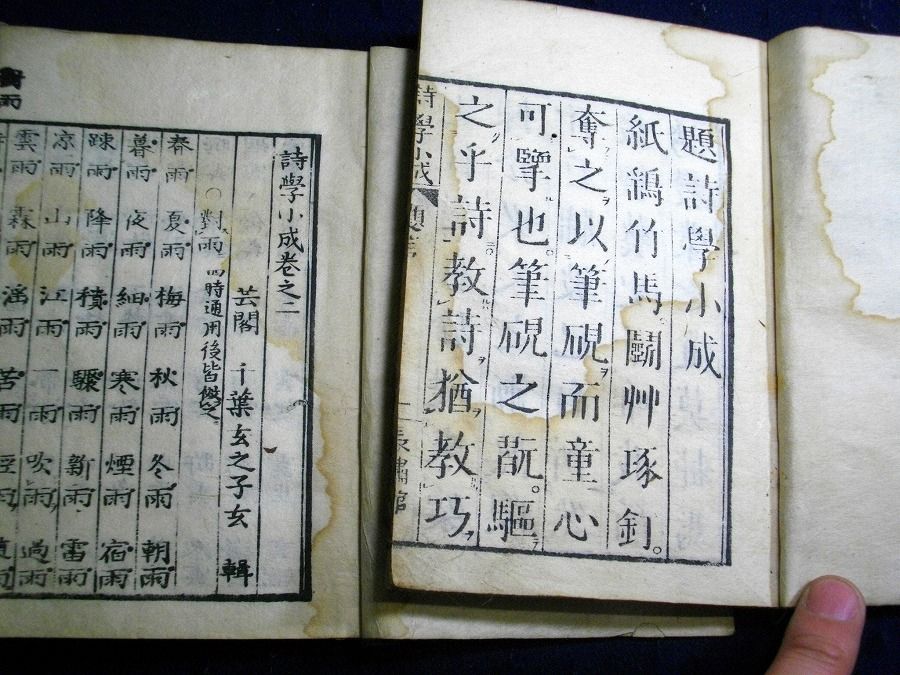 題詩學小成
紙鷂竹馬鬪艸琢釘。
奪之以筆硯而童心
可掔也。筆硯之翫。驅
之乎詩教詩猶教巧
詩學小成
題言
詩學小成卷之二
芸閣 千葉玄之子玄 輯
○對雨 四時通用後皆傚之
春雨 夏雨 梅雨 秋雨 冬雨 朝雨
暮雨 夜雨 細雨 寒雨 煙雨 宿雨
疎雨 降雨 積雨 驟雨 新雨 雷雨
凉雨 山雨 江雨 雨 吹雨 過雨
雲雨 霖雨 淫雨 苦雨 雨 雨
對雨